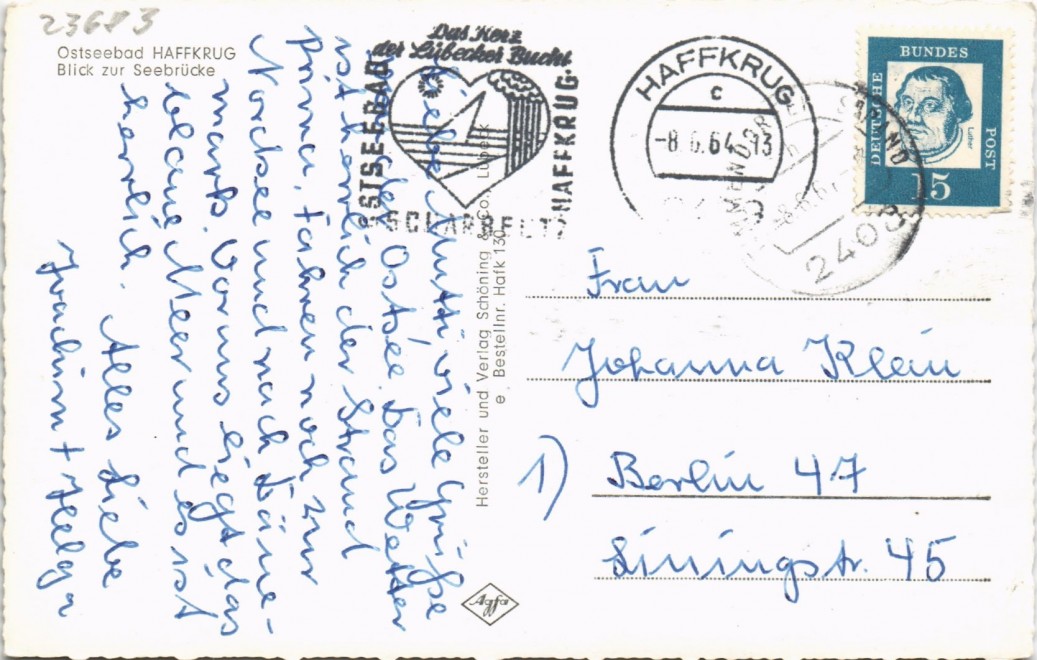 23683
Ostseebad HAFFKRUG
Blick zur Seebrücke
Das Herz
der Lübecker Bucht
OSTSEEBAD
HAFFKRUG-
SCHARBEUTZ
HAFFKRUG
c
-8.6.64.-13
2408
DEUTSCHE
BUNDES
POST
Luther
15
Liebe Mutti viele Grüße
von der Ostsee. Das Wetter
ist herrlich der Strand
prima, fahren noch zur
Nordsee und nach Däne-
mark. Vor uns liegt das
blaue Meer und es ist
herrlich. Alles Liebe
Joachim + Helga
Hersteller und Verlag Schöning & Co., Lübeck
e Bestellnr. Hafk 130
Agfa
Frau
Johanna Klein
1) Berlin 47
Liningstr. 45